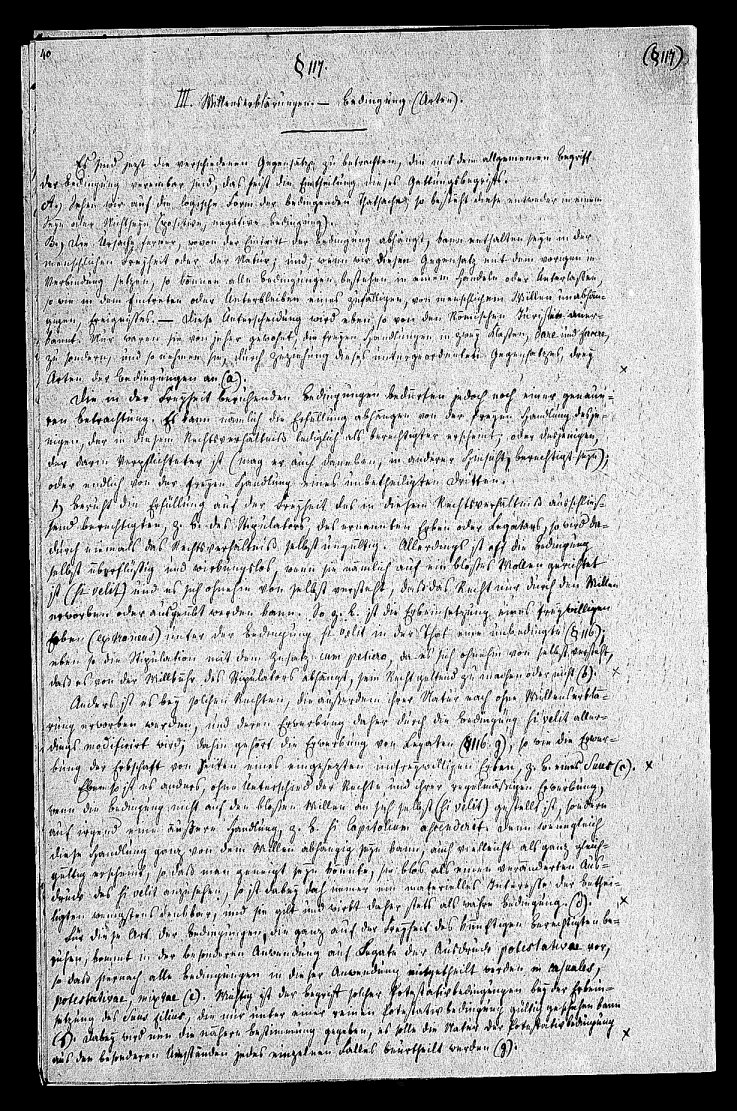 40
§ 117.
(§ 117)
III. Willenserklärungen. — Bedingung (Arten).
Es sind jetzt die verschiedenen Gegensätze zu betrachten, die mit dem allgemeinen Begriff
der Bedingung vereinbar sind, das heißt die Eintheilung dieses Gattungsbegriffs.
A.) Sehen wir auf die logische Form der bedingenden Thatsache, so besteht diese entweder in einem
Seyn oder Nichtseyn (positive, negative Bedingung).
B.) Die Ursache ferner, wovon der Eintritt der Bedingung abhängt, kann enthalten seyn in der
menschlichen Freyheit oder der Natur; und, wenn wir diesen Gegensatz mit dem vorigen in
Verbindung setzen, so können alle Bedingungen bestehen in einem Handeln oder Unterlassen,
so wie in dem Eintreten oder Unterbleiben eines zufälligen, von menschlichem Willen unabhän-
gigen, Ereignisses. — Diese Unterscheidung wird eben so von den Römischen Juristen aner-
kannt. Nur waren sie von jeher gewohnt, die freyen Handlungen in zwey Klassen, dare und facere,
zu sondern, und so nehmen sie, durch Zuziehung dieses untergeordneten Gegensatzes, drey
Arten der Bedingungen an (a).
Die in der Freyheit beruhenden Bedingungen bedürfen jedoch noch einer genaue-
ren Betrachtung. Es kann nämlich die Erfüllung abhängen von der freyen Handlung desje-
nigen, der in diesem Rechtsverhältniß lediglich als Berechtigter erscheint, oder desjenigen,
der darin Verpflichteter ist (mag er auch daneben, in anderer Hinsicht, berechtigt seyn),
oder endlich von der freyen Handlung eines unbetheiligten Dritten.
1) Beruht die Erfüllung auf der Freyheit des in diesem Rechtsverhältniß ausschlies-
send Berechtigten, z. B. des Stipulators, des ernannten Erben oder Legatars, so wird da-
durch niemals das Rechtsverhältniß selbst ungültig. Allerdings ist oft die Bedingung
selbst überflüssig und wirkungslos, wenn sie nämlich auf ein bloßes Wollen gerichtet
ist (si velit) und es sich ohnehin von selbst versteht, daß das Recht nur durch den Willen
erworben oder ausgeübt werden kann. So z. B. ist die Erbeinsetzung eines freywilligen
Erben (extraneus) unter der Bedingung si velit in der That eine unbedingte (§ 116),
eben so die Stipulation mit dem Zusatz cum petiero, da es sich ohnehin von selbst versteht,
daß es von der Willkühr des Stipulators abhängt, sein Recht geltend zu machen oder nicht (b).
Anders ist es bey solchen Rechten, die außerdem ihrer Natur nach ohne Willenserklä-
rung erworben werden, und deren Erwerbung daher durch die Bedingung si velit aller-
dings modificirt wird; dahin gehört die Erwerbung von Legaten (§ 116. g), so wie die Erwer-
bung der Erbschaft von Seiten eines eingesetzten unfreywilligen Erben, z. B. eines Suus (c).
Ebenso ist es anders, ohne Unterschied der Rechte und ihrer regelmäßigen Erwerbung,
wenn die Bedingung nicht auf den bloßen Willen an sich selbst (si velit) gestellt ist, sondern
auf irgend eine äußere Handlung, z. B. si Capitolium ascenderit. Denn wenngleich
diese Handlung ganz von dem Willen abhängig seyn kann, auch vielleicht als ganz gleich-
gültig erscheint, so daß man geneigt seyn könnte, sie blos als einen veränderten Aus-
druck des si velit anzusehen, so ist dabey doch immer ein materielles Interesse der Bethei-
ligten wenigstens denkbar, und sie gilt und wirkt daher stets als wahre Bedingung (d).
Für diese Art der Bedingungen, die ganz auf der Freyheit des künftigen Berechtigten be-
ruhen, kommt in der besonderen Anwendung auf Legate der Ausdruck potestativae vor,
so daß hiernach alle Bedingungen in dieser Anwendung eingetheilt werden in casuales,
potestativae, mixtae (e). Wichtig ist der Begriff solcher Potestativbedingungen bey der Erbein-
setzung des Suus filius, die nur unter einer reinen Potestativbedingung gültig geschehen kann
(f). Dabey wird nun die nähere Bestimmung gegeben, es solle die Natur der Potestativbedingung
aus den besonderen Umständen jedes einzelnen Falles beurtheilt werden (g).